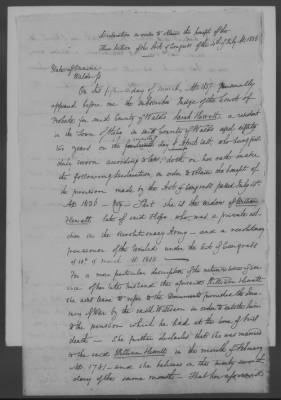 Declaration in order to obtain the benefit of the
third section of the Act of Congress of the 4th July AD. 1836
State of Maine
Waldo SS
On this first day of March AD. 1837. Personally
appeared before me the subscriber Judge of the Court of
Probate for said County of Waldo Sarah Hewett a resident
in the Town of Hope in said County of Waldo aged eighty
two years on the day of April last, who being first
duly sworn according to law, doth on her oath make
the following declaration in order to obtain the benefit of
the provision made by the Act of Congress passed July 4th
AD. 1836 - That she is the widow of William
Hewett late of said Hope who was a private sol-
dier in the revolutionary Army - and a revolutionary
pensioner of the United under the Act of Congress
of 18th of March AD. 1818 -
For a more particular description of the nature of ser-
vice of her late husband the aforesaid William Hewett
she asks leave to refer to the Documents furnished the Secre-
tary of War by the said William in order to entitle him
to the pension which he had at the time of his
death - She further declares that she was married
to the said William Hewett in the month of February
AD. 1781 - and she believes on the twenty seventh
day of the same month - That her aforesaid